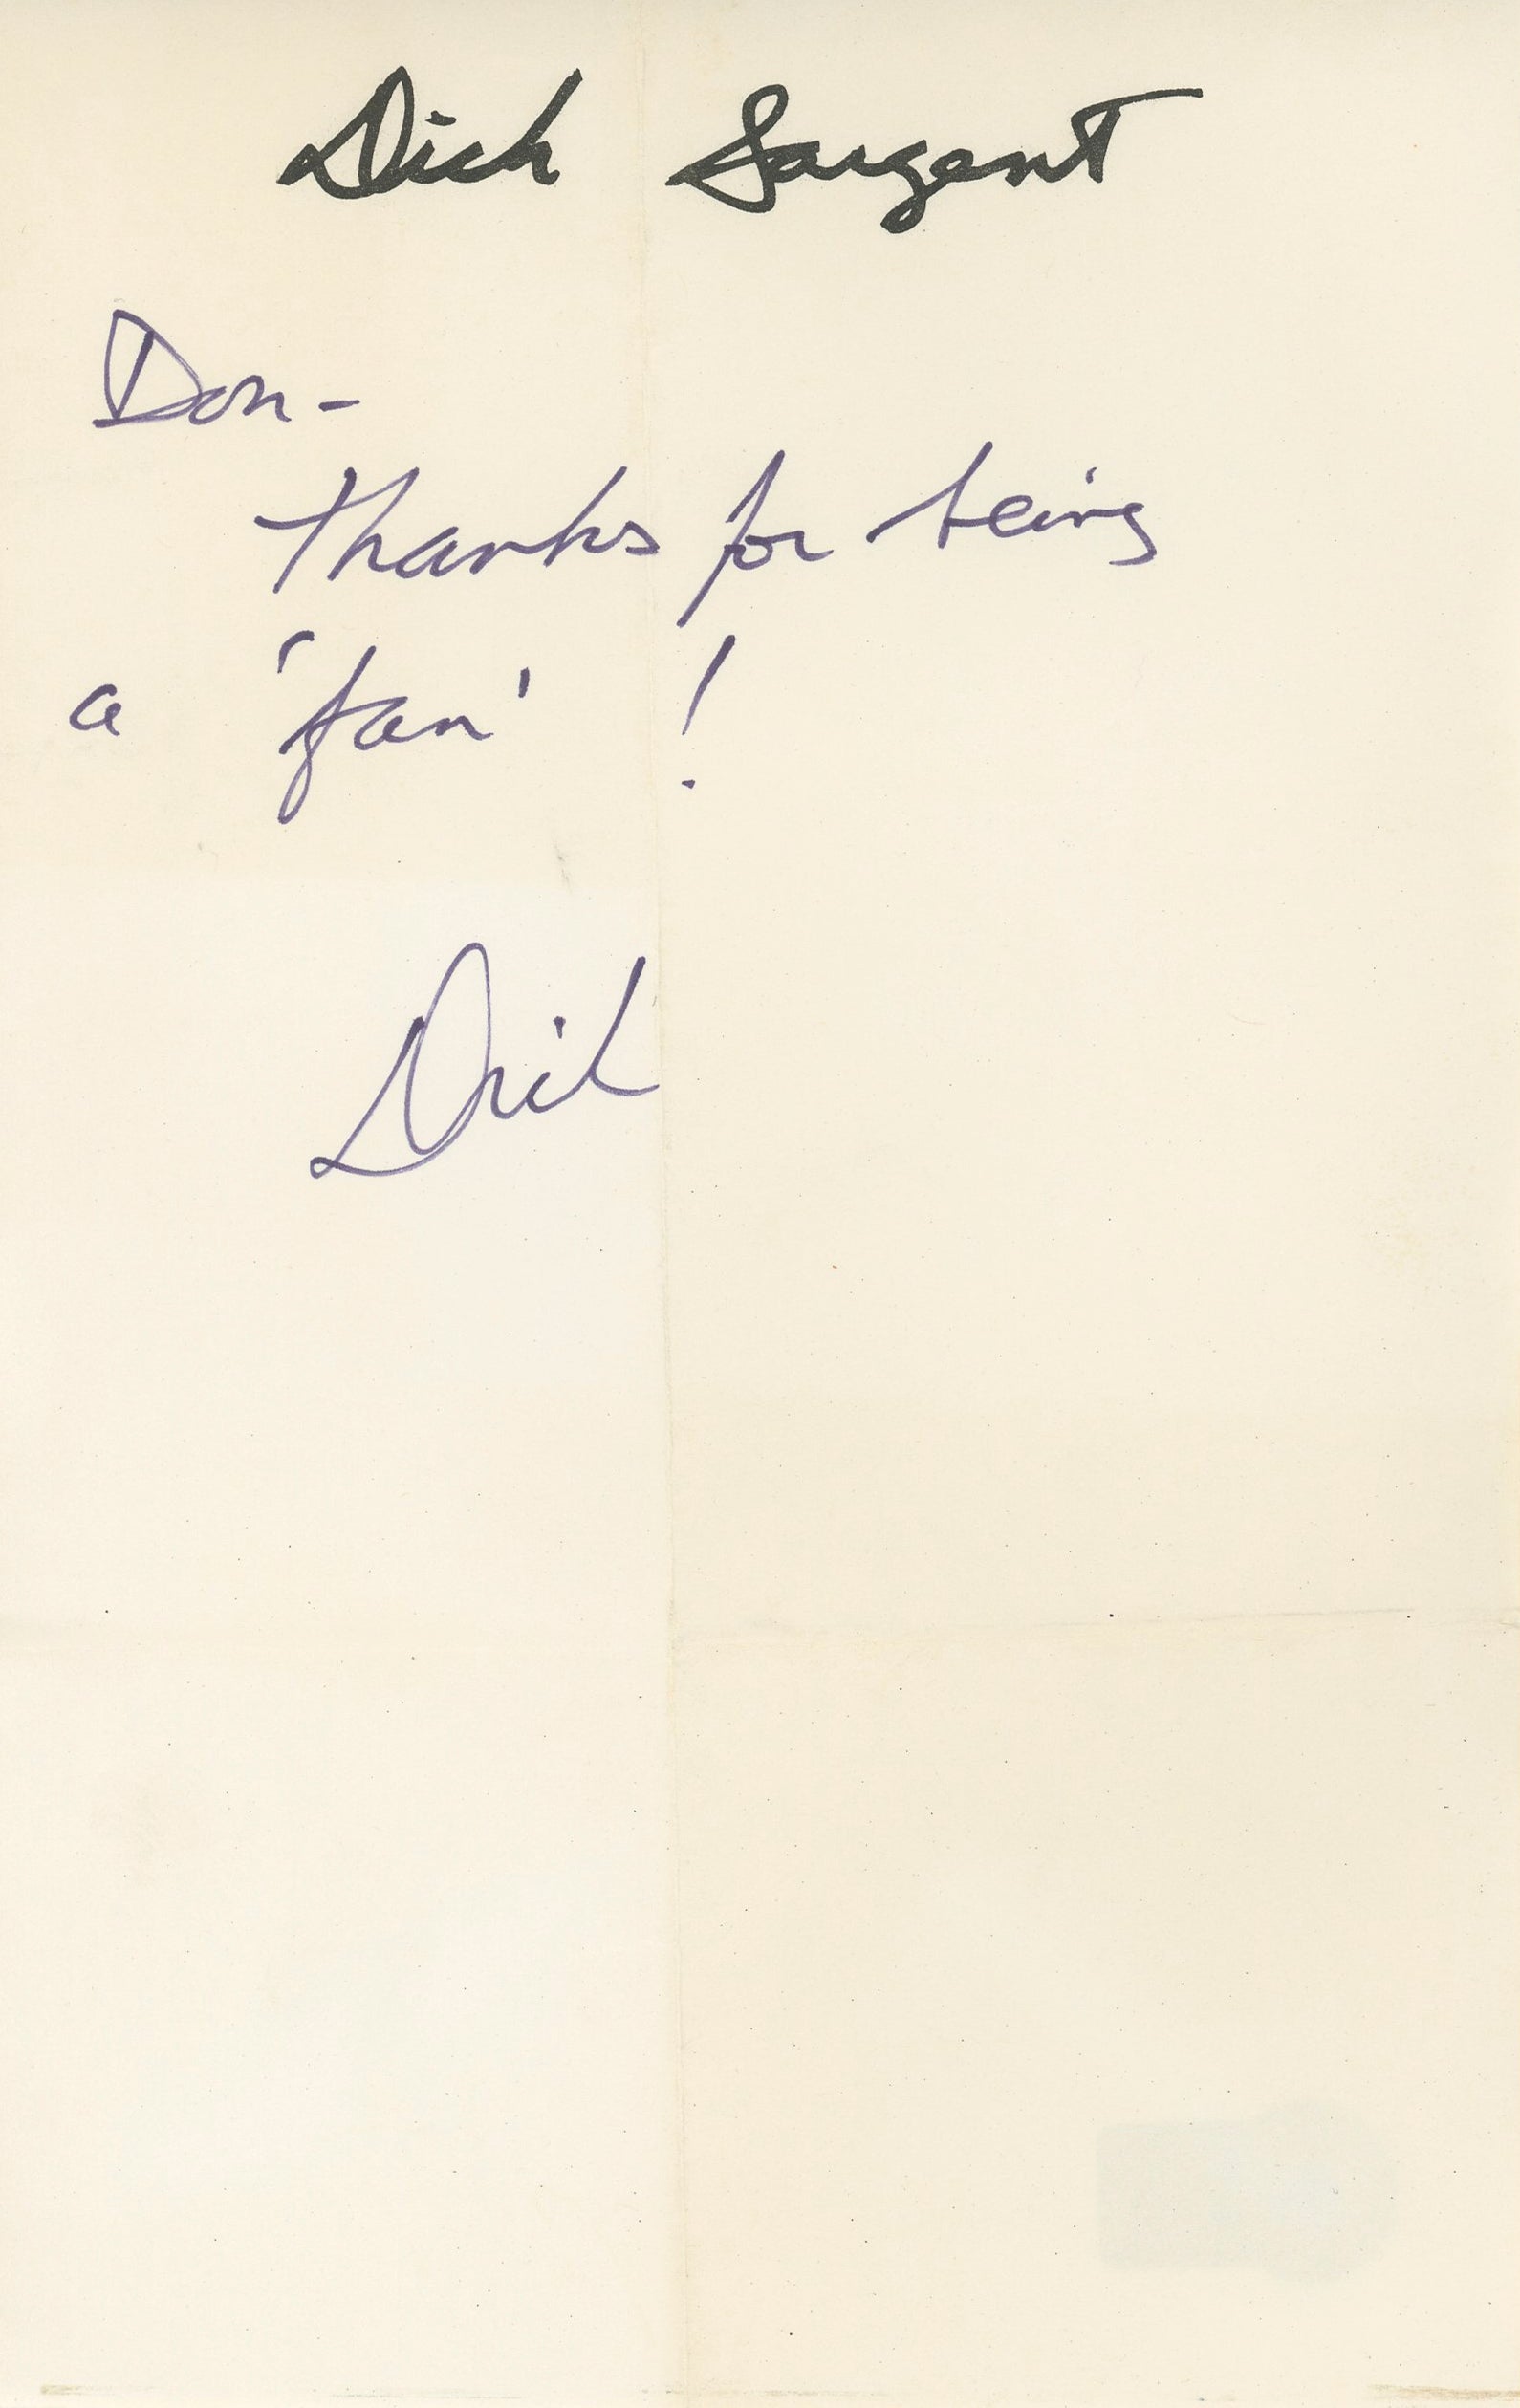 Dick Sargent
Don-
Thanks for being
a 'fan' !
Dick